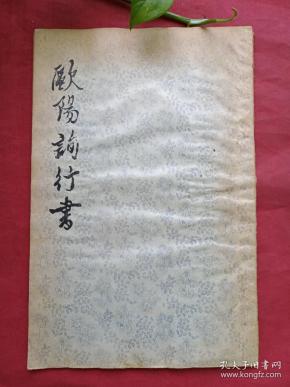 歐陽詢行書
孔夫子旧书网
kongfz.com